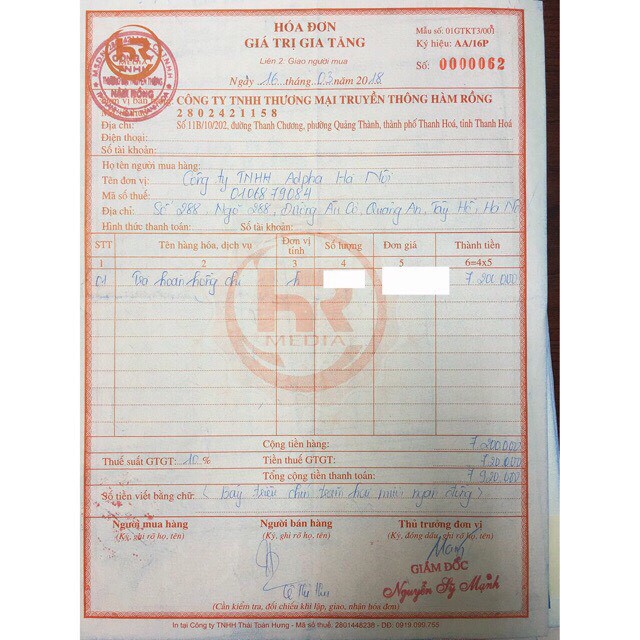 HÓA ĐƠN
GIÁ TRỊ GIA TĂNG
Liên 2: Giao người mua
Ngày 16 tháng 03 năm 2018
Mẫu số: 01GTKT3/001
Ký hiệu: AA/16P
Số: 0000062
HÀM RỒNG
Đơn vị bán CÔNG TY TNHH THƯƠNG MẠI TRUYỀN THÔNG HÀM RỒNG
2802421158
Địa chỉ: Số 11B/10/202, đường Thanh Chương, phường Quảng Thành, thành phố Thanh Hoá, tỉnh Thanh Hoá
Điện thoại:
Số tài khoản:
Họ tên người mua hàng:
Tên đơn vị: Công ty TNHH Adpha Hà Nội
Mã số thuế: 0106879084
Địa chỉ: Số 288, Ngõ 288, Đường Âu Cơ, Quảng An, Tây Hồ, Hà Nội
Hình thức thanh toán: Số tài khoản:
STT Tên hàng hóa, dịch vụ Đơn vị tính Số lượng Đơn giá Thành tiền
1 2 3 4 5 6=4x5
01 Trà hoàn hồng chi h 7.200.000
HR
MEDIA
Cộng tiền hàng: 7.200.000
Thuế suất GTGT: 10 % Tiền thuế GTGT: 720.000
Tổng cộng tiền thanh toán: 7.920.000
Số tiền viết bằng chữ: ( Bảy triệu chín trăm hai mươi ngàn đồng )
Người mua hàng Người bán hàng Thủ trưởng đơn vị
(Ký, ghi rõ họ, tên) (Ký, ghi rõ họ, tên) (Ký, đóng dấu, ghi rõ họ, tên)
Lê Thị Thu
GIÁM ĐỐC
Nguyễn Sỹ Mạnh
(Cần kiểm tra, đối chiếu khi lập, giao, nhận hóa đơn)
In tại Công ty TNHH Thái Toàn Hưng - Mã số thuế: 2801448238 - DĐ: 0919.099.755